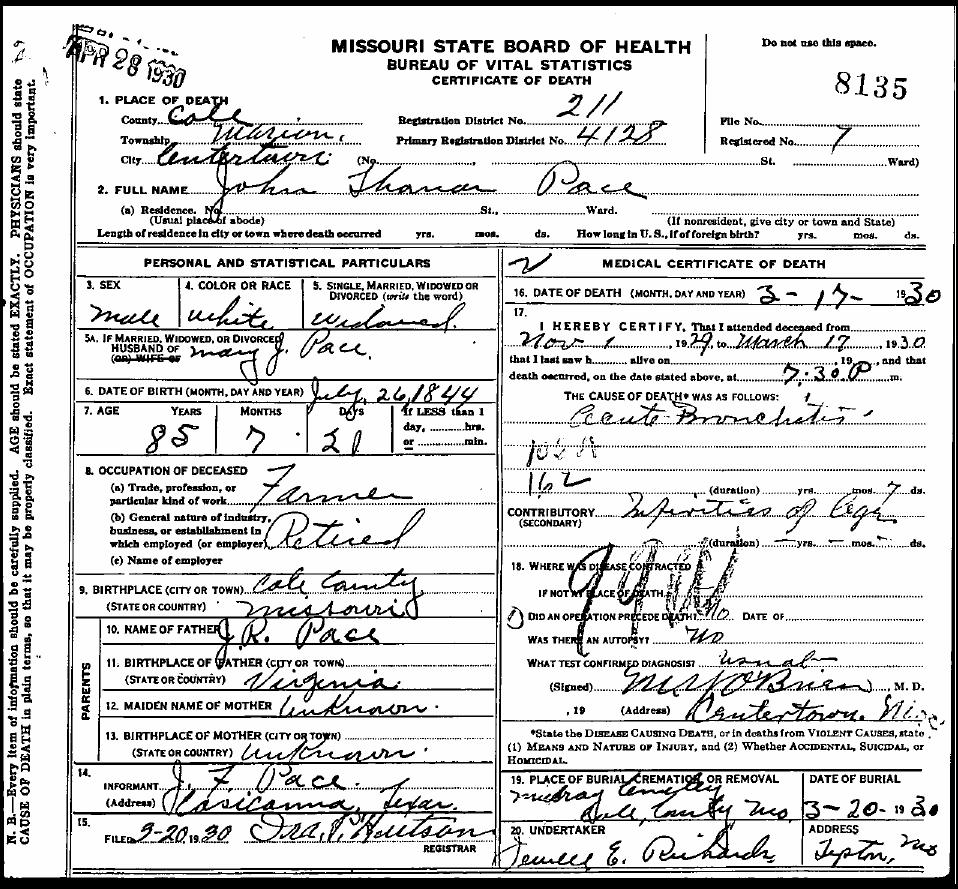 APR 28 1930
MISSOURI STATE BOARD OF HEALTH
BUREAU OF VITAL STATISTICS
CERTIFICATE OF DEATH
Do not use this space.
8135
1. PLACE OF DEATH
County Cole Registration District No. 211 File No.
Township Marion Primary Registration District No. 4128 Registered No. 7
City Centertown (No. St. Ward)
2. FULL NAME John Pace
(a) Residence. No. St., Ward.
(Usual place of abode) (If nonresident, give city or town and State)
Length of residence in city or town where death occurred yrs. mos. ds. How long in U. S., if of foreign birth? yrs. mos. ds.
PERSONAL AND STATISTICAL PARTICULARS
3. SEX 4. COLOR OR RACE 5. SINGLE, MARRIED, WIDOWED OR DIVORCED (write the word)
male white widowed
5A. IF MARRIED, WIDOWED, OR DIVORCED
HUSBAND OF
(OR) WIFE OF Mary J. Pace.
6. DATE OF BIRTH (MONTH, DAY AND YEAR) July, 26, 1844
7. AGE YEARS MONTHS DAYS If LESS than 1 day, hrs. or min.
85 7 21
8. OCCUPATION OF DECEASED
(a) Trade, profession, or particular kind of work Farmer
(b) General nature of industry, business, or establishment in which employed (or employer) Retired
(c) Name of employer
9. BIRTHPLACE (CITY OR TOWN) Cole County
(STATE OR COUNTRY) Missouri
PARENTS
10. NAME OF FATHER J. R. Pace
11. BIRTHPLACE OF FATHER (CITY OR TOWN)
(STATE OR COUNTRY) Virginia.
12. MAIDEN NAME OF MOTHER Unknown.
13. BIRTHPLACE OF MOTHER (CITY OR TOWN)
(STATE OR COUNTRY) Unknown.
14.
INFORMANT J. F. Pace.
(Address) Texas.
15.
FILED 3-20, 1930 Ira P.
REGISTRAR
2 MEDICAL CERTIFICATE OF DEATH
16. DATE OF DEATH (MONTH, DAY AND YEAR) 3-17- 1930
17.
I HEREBY CERTIFY, That I attended deceased from
Nov 1, 1929, to March 17, 1930
that I last saw h alive on , 19 , and that
death occurred, on the date stated above, at 7:30 P m.
THE CAUSE OF DEATH* WAS AS FOLLOWS:
Acute Bronchitis
162
(duration) yrs. mos. 7 ds.
CONTRIBUTORY of Age
(SECONDARY)
(duration) – yrs. – mos. – ds.
18. WHERE WAS DISEASE CONTRACTED
IF NOT AT PLACE OF DEATH
DID AN OPERATION PRECEDE DEATH? No DATE OF
WAS THERE AN AUTOPSY? No
WHAT TEST CONFIRMED DIAGNOSIS? Usual
(Signed) O'Brien, M. D.
, 19 (Address) Centertown,
*State the DISEASE CAUSING DEATH, or in deaths from VIOLENT CAUSES, state
(1) MEANS AND NATURE OF INJURY, and (2) Whether ACCIDENTAL, SUICIDAL, or
HOMICIDAL.
19. PLACE OF BURIAL, CREMATION, OR REMOVAL DATE OF BURIAL
Cole, County Mo 3-20- 1930
20. UNDERTAKER ADDRESS
E. Richards Tipton, Mo
N. B.—Every item of information should be carefully supplied. AGE should be stated EXACTLY. PHYSICIANS should state
CAUSE OF DEATH in plain terms, so that it may be properly classified. Exact statement of OCCUPATION is very important.